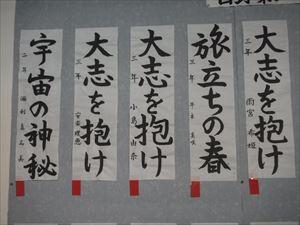 大志を抱け
三年 雨宮 希姫
旅立ちの春
三年
大志を抱け
三年 小島由奈
大志を抱け
三年 安藤理恵
宇宙の神秘
二年